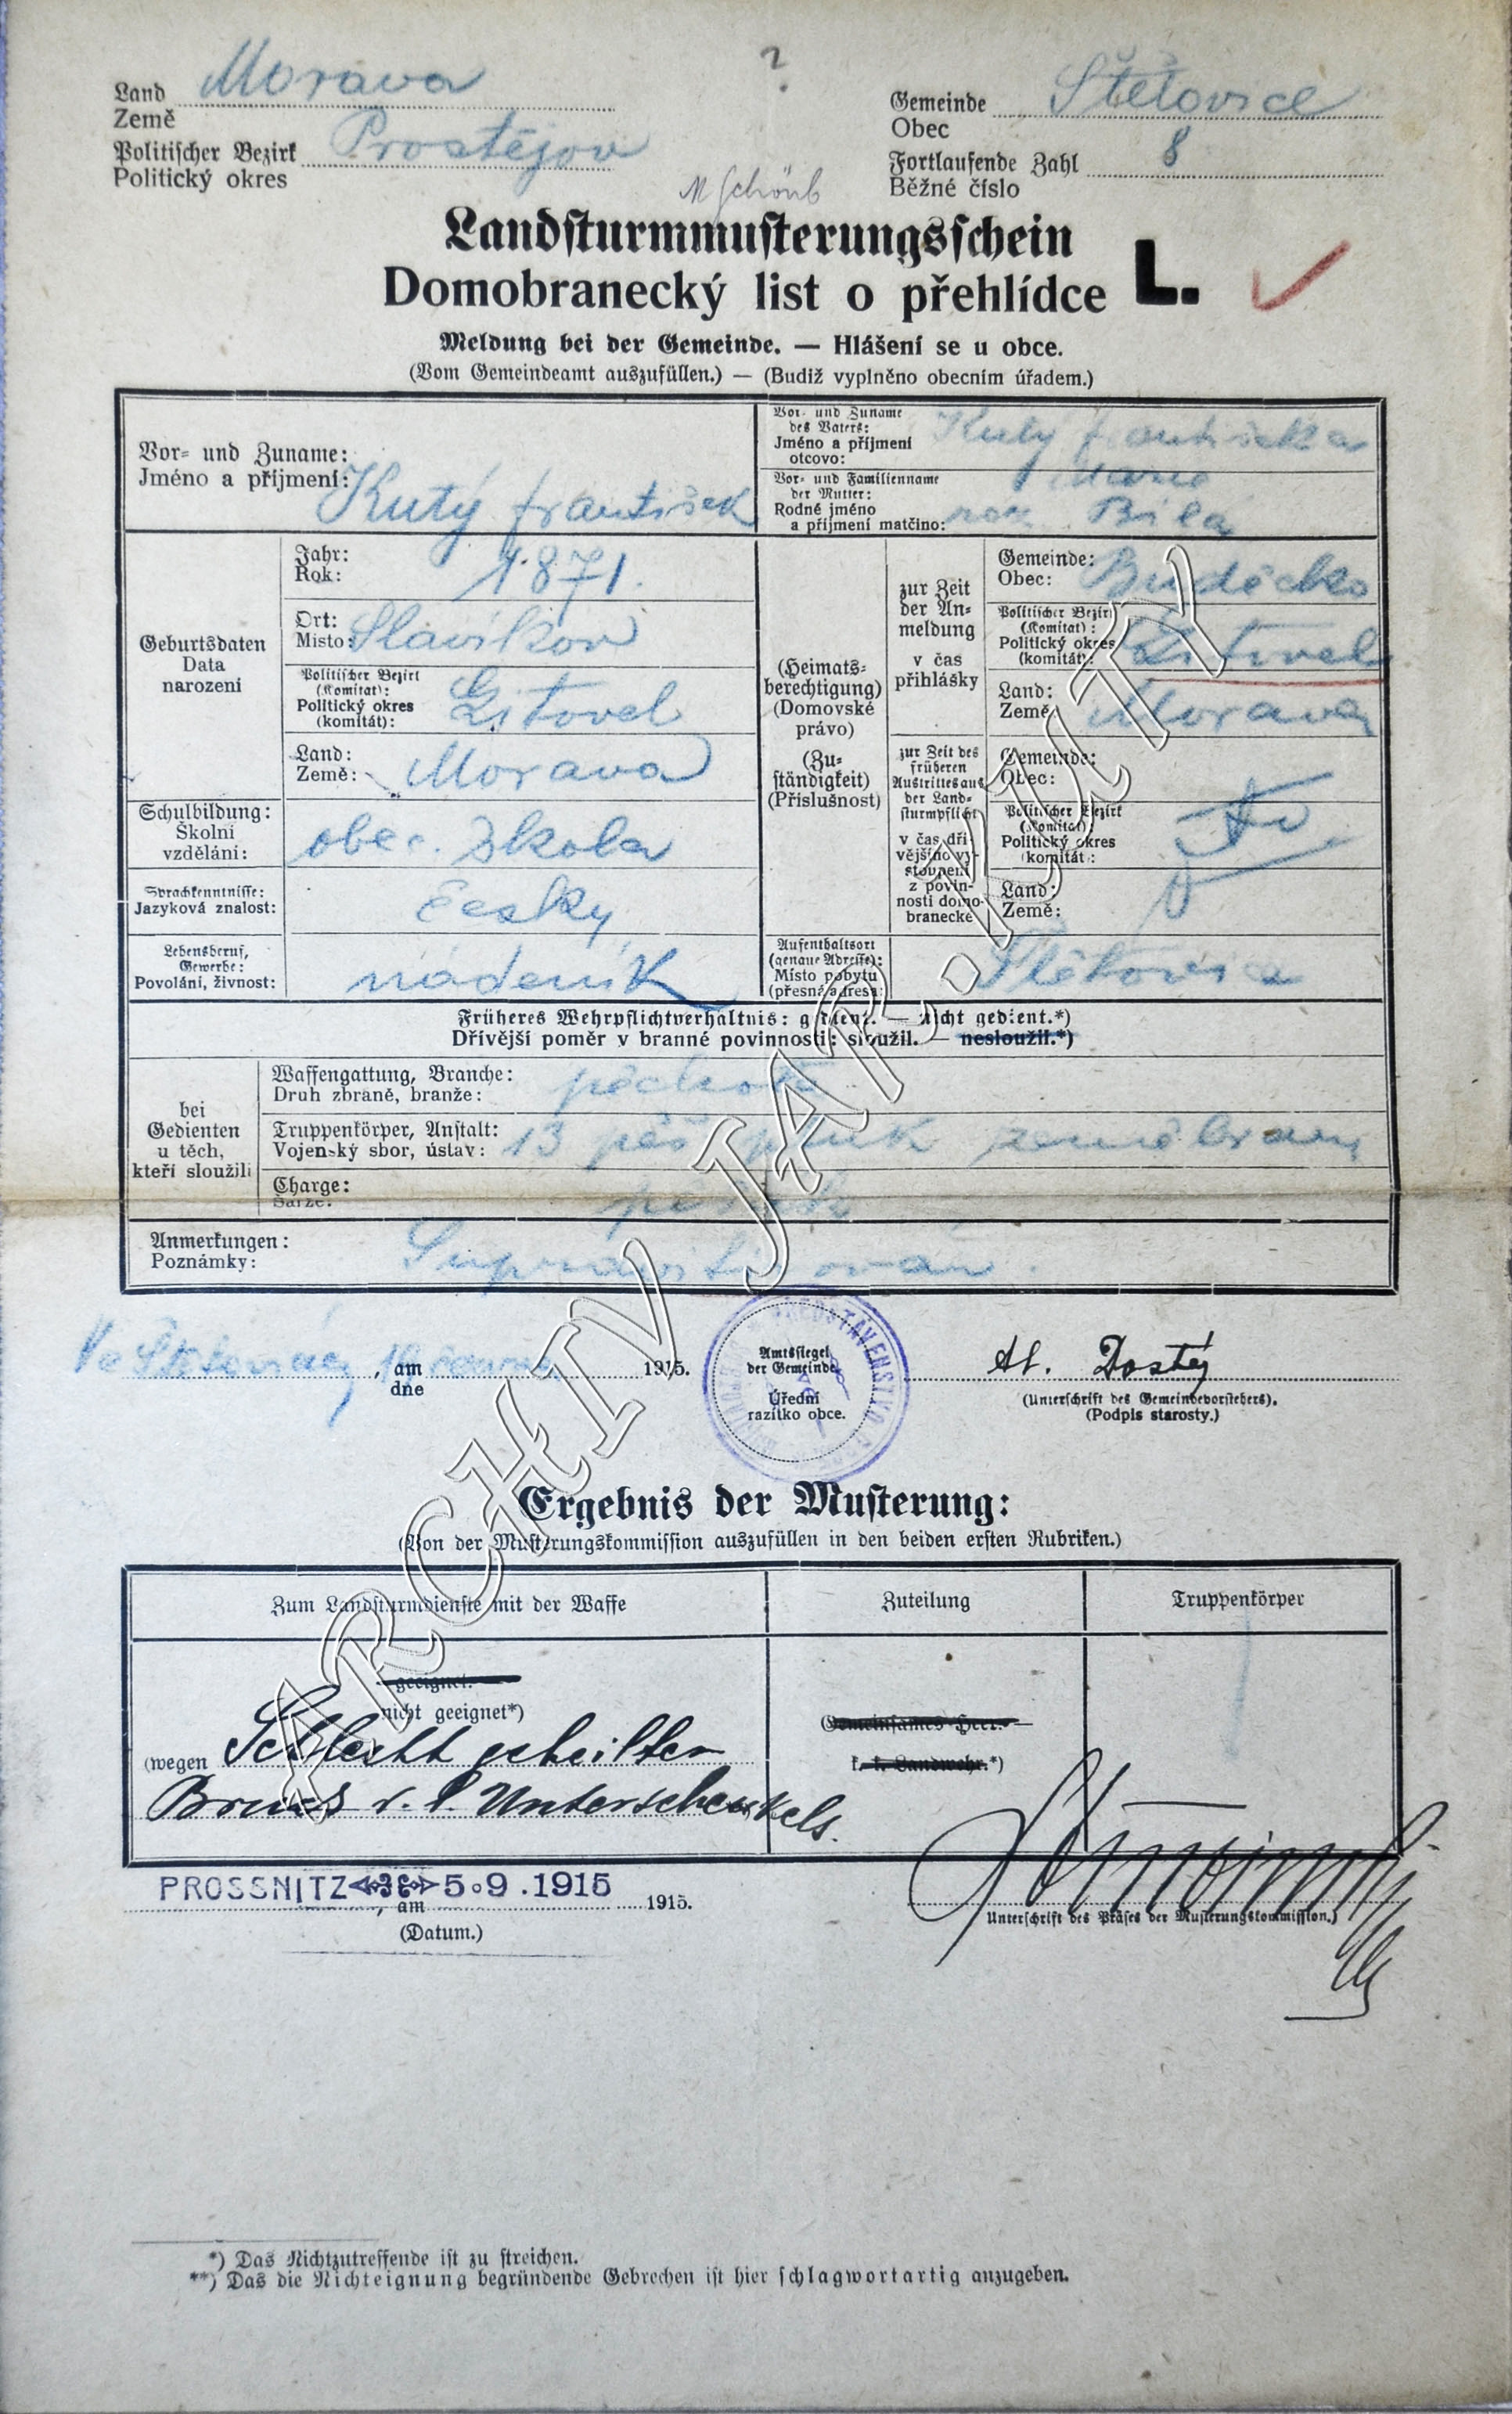 Land Morava
Země
Politischer Bezirk Prostějov
Politický okres
Gemeinde Štětovice
Obec
Fortlaufende Zahl 8
Běžné číslo
M Schönb
Landsturmmusterungsschein
Domobranecký list o přehlídce L.
Meldung bei der Gemeinde. — Hlášení se u obce.
(Vom Gemeindeamt auszufüllen.) — (Budiž vyplněno obecním úřadem.)
Vor- und Zuname:
Jméno a příjmení: Kutý František
Vor- und Zuname
des Vaters:
Jméno a příjmení
otcovo:
Kutý Františeka
Vor- und Familienname
der Mutter:
Rodné jméno
a příjmení matčino:
Marie
roz. Bílá
Geburtsdaten
Data
narození
Jahr:
Rok: 1871.
Ort:
Místo: Slavíkov
Politischer Bezirk
(Komitat):
Politický okres
(komitát):
Litovel
Land:
Země: Morava
Schulbildung:
Školní
vzdělání:
obec. škola
Sprachkenntnisse:
Jazyková znalost: česky
Lebensberuf,
Gewerbe:
Povolání, živnost: nádeník
(Heimats-
berechtigung)
(Domovské
právo)
(Zu-
ständigkeit)
(Příslušnost)
zur Zeit
der An-
meldung
v čas
přihlášky
Gemeinde:
Obec: Budĕcko
Politischer Bezirk
(Komitat):
Politický okres
(komitát):
Litovel
Land:
Země: Morava
zur Zeit des
früheren
Austrittes aus
der Land-
sturmpflicht
v čas dří-
vějšího vy-
stoupení
z povin-
nosti domo-
branecké
Gemeinde:
Obec:
Politischer Bezirk
(Komitat):
Politický okres
(komitát):
Land:
Země:
Aufenthaltsort
(genaue Adresse):
Místo pobytu
(přesná adresa):
Štětovice
Früheres Wehrpflichtverhältnis: gedient. — nicht gedient.*)
Dřívější poměr v branné povinnosti: sloužil. — nesloužil.*)
bei
Gedienten
u těch,
kteří sloužili
Waffengattung, Branche:
Druh zbraně, branže: pěchota
Truppenkörper, Anstalt:
Vojenský sbor, ústav: 13 pěš pluk zeměbrany
Charge:
Šarže: pěšák
Anmerkungen:
Poznámky: Suprávitirovan.
Ve Štětovicích, am
dne
1915.
Amtssiegel
der Gemeinde
Úřední
razítko obce.
Al. Dostý
(Unterschrift des Gemeindevorstehers).
(Podpis starosty.)
Ergebnis der Musterung:
(Von der Musterungskommission auszufüllen in den beiden ersten Rubriken.)
Zum Landsturmdienste mit der Waffe
Zuteilung
Truppenkörper
geeignet.
nicht geeignet*)
(wegen Schlecht geheilten
Bruch d. l. Unterschenkels.
Gemeinsames Heer. —
k. k. Landwehr.*)
PROSSNITZ 5.9.1915 1915.
, am
(Datum.)
Unterschrift des Präses der Musterungskommission.)
*) Das Nichtzutreffende ist zu streichen.
**) Das die Nichteignung begründende Gebrechen ist hier schlagwortartig anzugeben.
ARCHIV JAR. KUTÝ